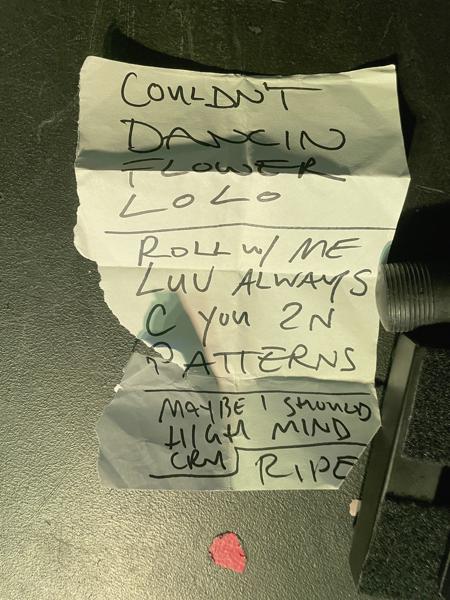 COULDN'T
DANCIN
FLOWER
LOLO
ROLL W/ ME
LUV ALWAYS
C YOU 2N
PATTERNS
MAYBE I SHOULD
HIGH MIND
CRM RIPE